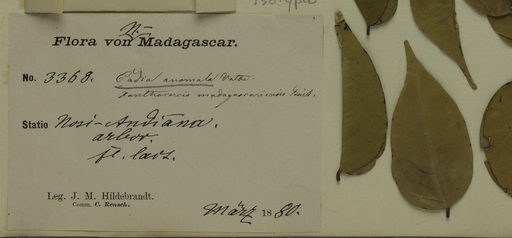 Isotypus
N.
Flora von Madagascar.
No. 3368. Cadia anomala Vatke.
Xanthocercis madagascariensis Baill.
Statio Nosi-Andiāna.
arbor.
fl.
Leg. J. M. Hildebrandt.
Comm. C. Rensch.
März 1880.